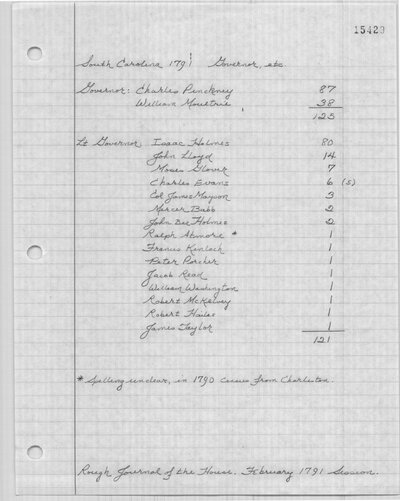 15420
South Carolina 1791 Governor, etc.
Governor: Charles Pinckney 87
William Moultrie 38
125
Lt Governor Isaac Holmes 80
John Lloyd 14
Moses Glover 7
Charles Evans 6 (5)
Col James Mayson 3
Mercer Babb 2
John Bee Holmes 2
Ralph Atmore * 1
Francis Kinloch 1
Peter Porcher 1
Jacob Read 1
William Washington 1
Robert McKelvey 1
Robert 1
James Taylor 1
121
* Spelling unclear, in 1790 Census from Charleston.
Rough Journal of the House. February 1791 Session.